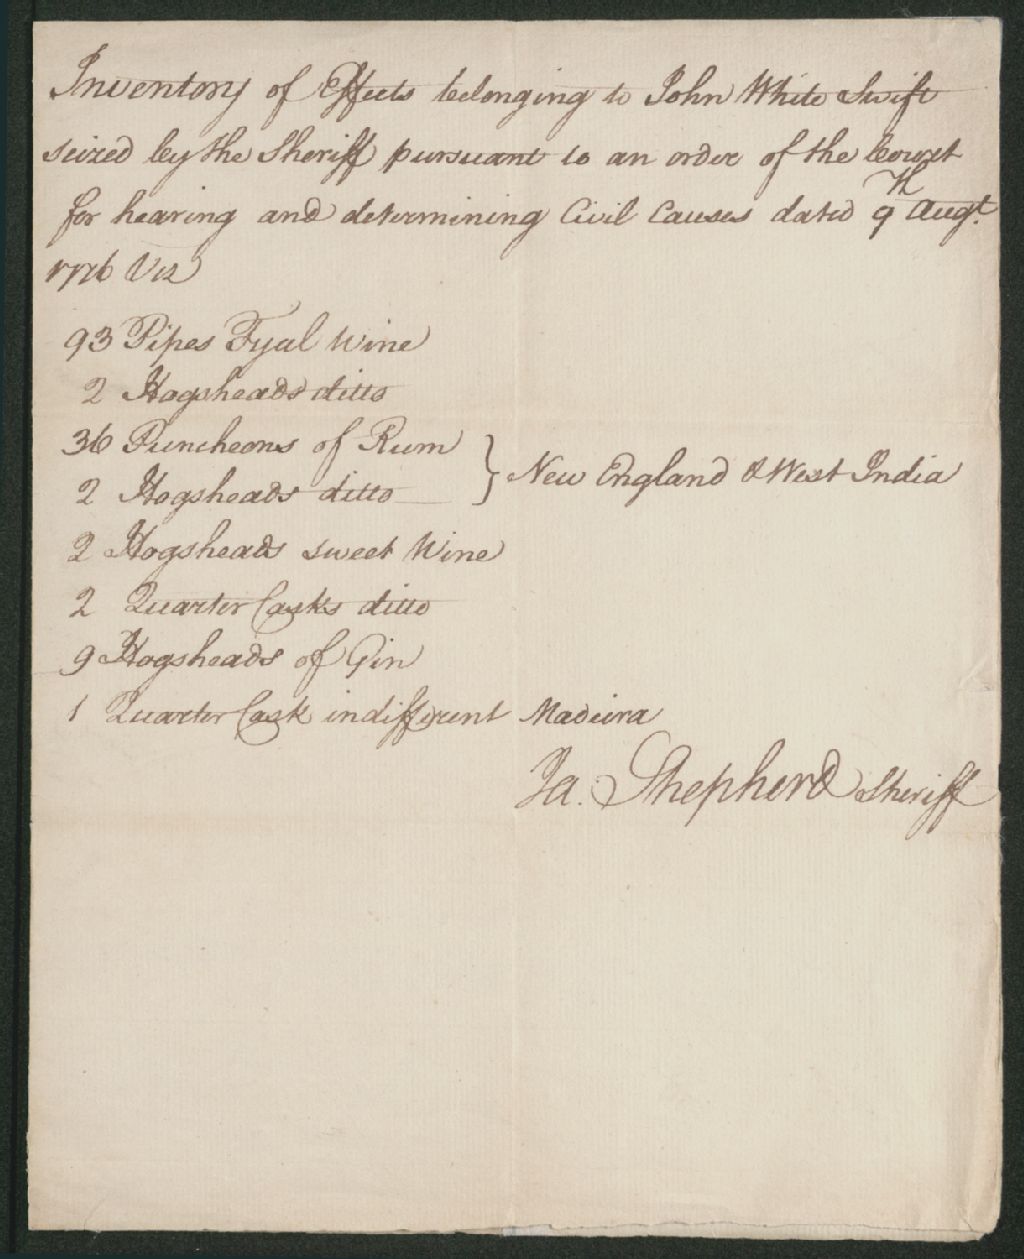 Inventory of Effects belonging to John White Swift
seized by the Sheriff pursuant to an order of the Court
for hearing and determining Civil Causes dated 9th Augt.
1776 Viz
93 Pipes Fyal Wine
2 Hogsheads ditto
36 Puncheons of Rum
2 Hogsheads ditto } New England & West India
2 Hogsheads sweet Wine
2 Quarter Casks ditto
9 Hogsheads of Gin
1 Quarter Cask indifferent Madeira
Ja. Shepherd Sheriff